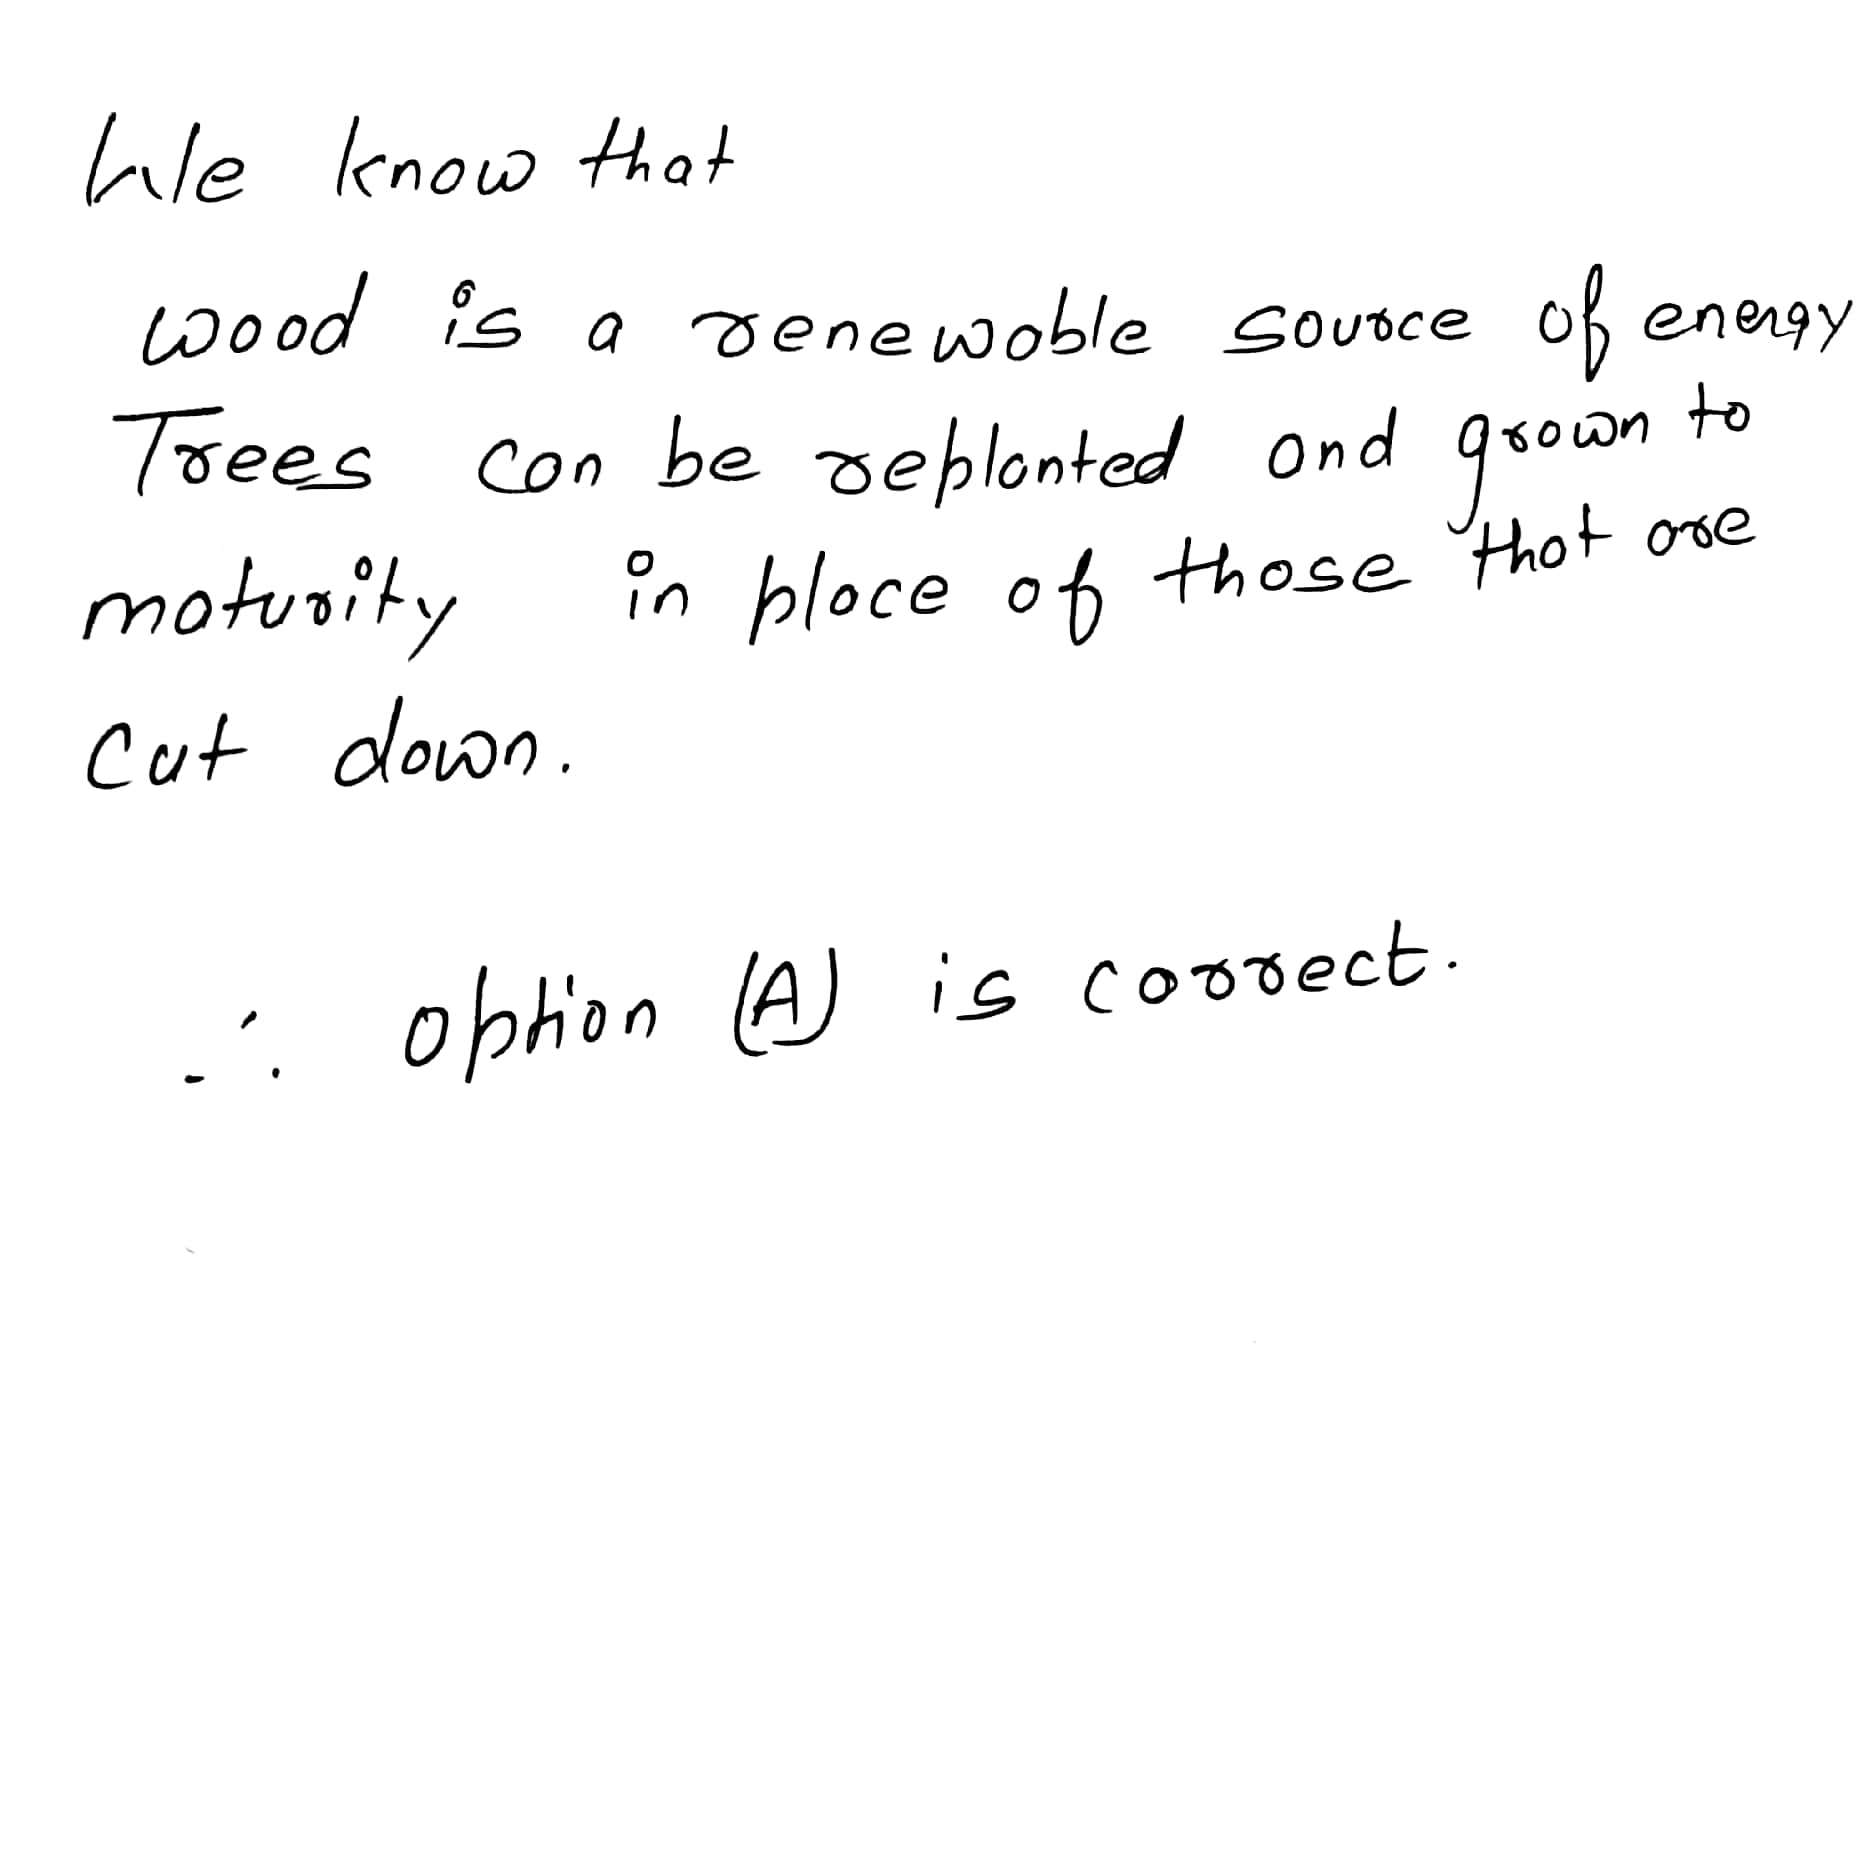 We know that
wood is a renewable source of energy
Trees can be replanted and grown to
maturity in place of those that are
cut down.
∴ option (A) is correct.